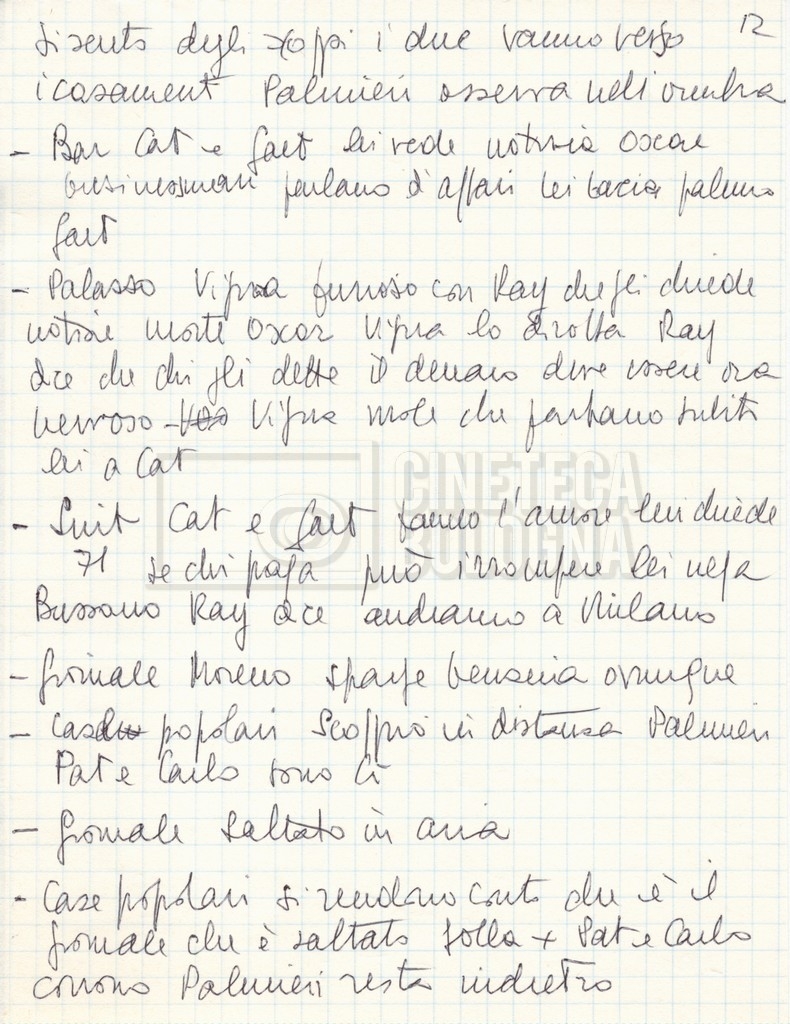 12
si sente degli scoppi i due vanno verso
i casament Palmieri osserva nell'ombra
- Bar Cat e Gaet lei vede notizia Oscar
businessman parlano d'affari lei bacia
Gaet
- Palasso Vigna furioso con Ray che gli chiede
notizie morte Oscar Vigna lo Ray
dce che chi gli dette il denaro deve essere ora
nervoso - Vigna vuole che partano subito
lei a Cat
- Suit Cat e Gaet fanno l'amore lei chiede
71 se chi paga può irrompere lei nega
Bussano Ray dce andranno a Milano
- Giornale Moreno sparge benzina ovunque
- Case popolari Scoppio in distanza Palmieri
Pat e Carlo sono lì
- Giornale saltato in aria
- Case popolari si rendono conto che è il
giornale che è saltato folla + Pat e Carlo
corrono Palmieri resta indietro
CINETECA
BOLOGNA